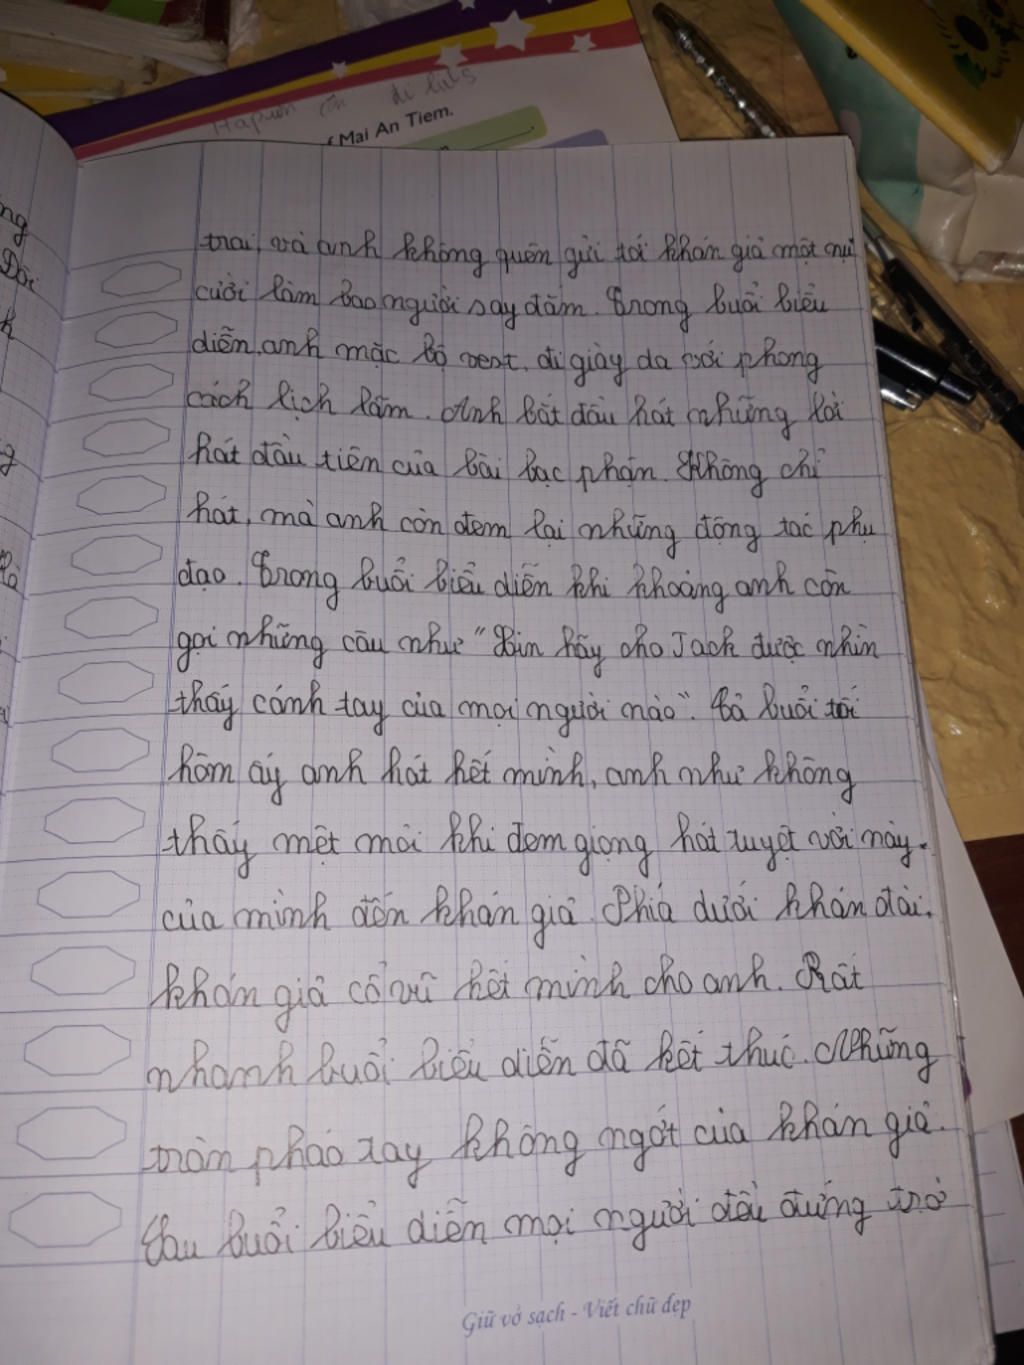 Mai An Tiem.
trai, và anh không quên gửi tới khán giả một nụ
cười làm bao người say đắm. Trong buổi biểu
diễn, anh mặc bộ vest, đi giày da với phong
cách lịch lãm. Anh bắt đầu hát những lời
hát đầu tiên của bài bạc phận. Không chỉ
hát, mà anh còn đem lại những động tác phụ
đạo. Trong buổi biểu diễn khi khoảng anh còn
gọi những câu như "Xin hãy cho Jach được nhìn
thấy cánh tay của mọi người nào". Cả buổi tối
hôm ấy anh hát hết mình, anh như không
thấy mệt mỏi khi đem giọng hát tuyệt vời này.
của mình đến khán giả. Phía dưới khán đài,
khán giả cổ vũ hết mình cho anh. Rất
nhanh buổi biểu diễn đã kết thúc. Những
tràn pháo tay không ngớt của khán giả.
Sau buổi biểu diễn mọi người đều đứng trở
Giữ vở sạch - Viết chữ đẹp